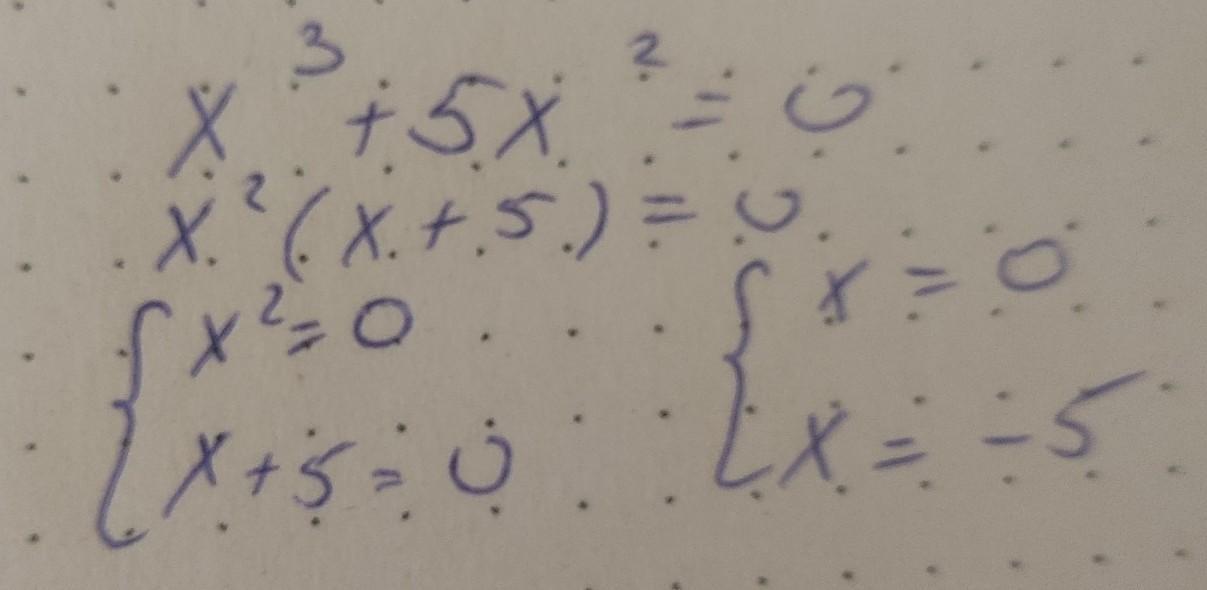 x³ + 5x² = 0
x² (x + 5) = 0
{ x² = 0
x + 5 = 0
{ x = 0
x = -5